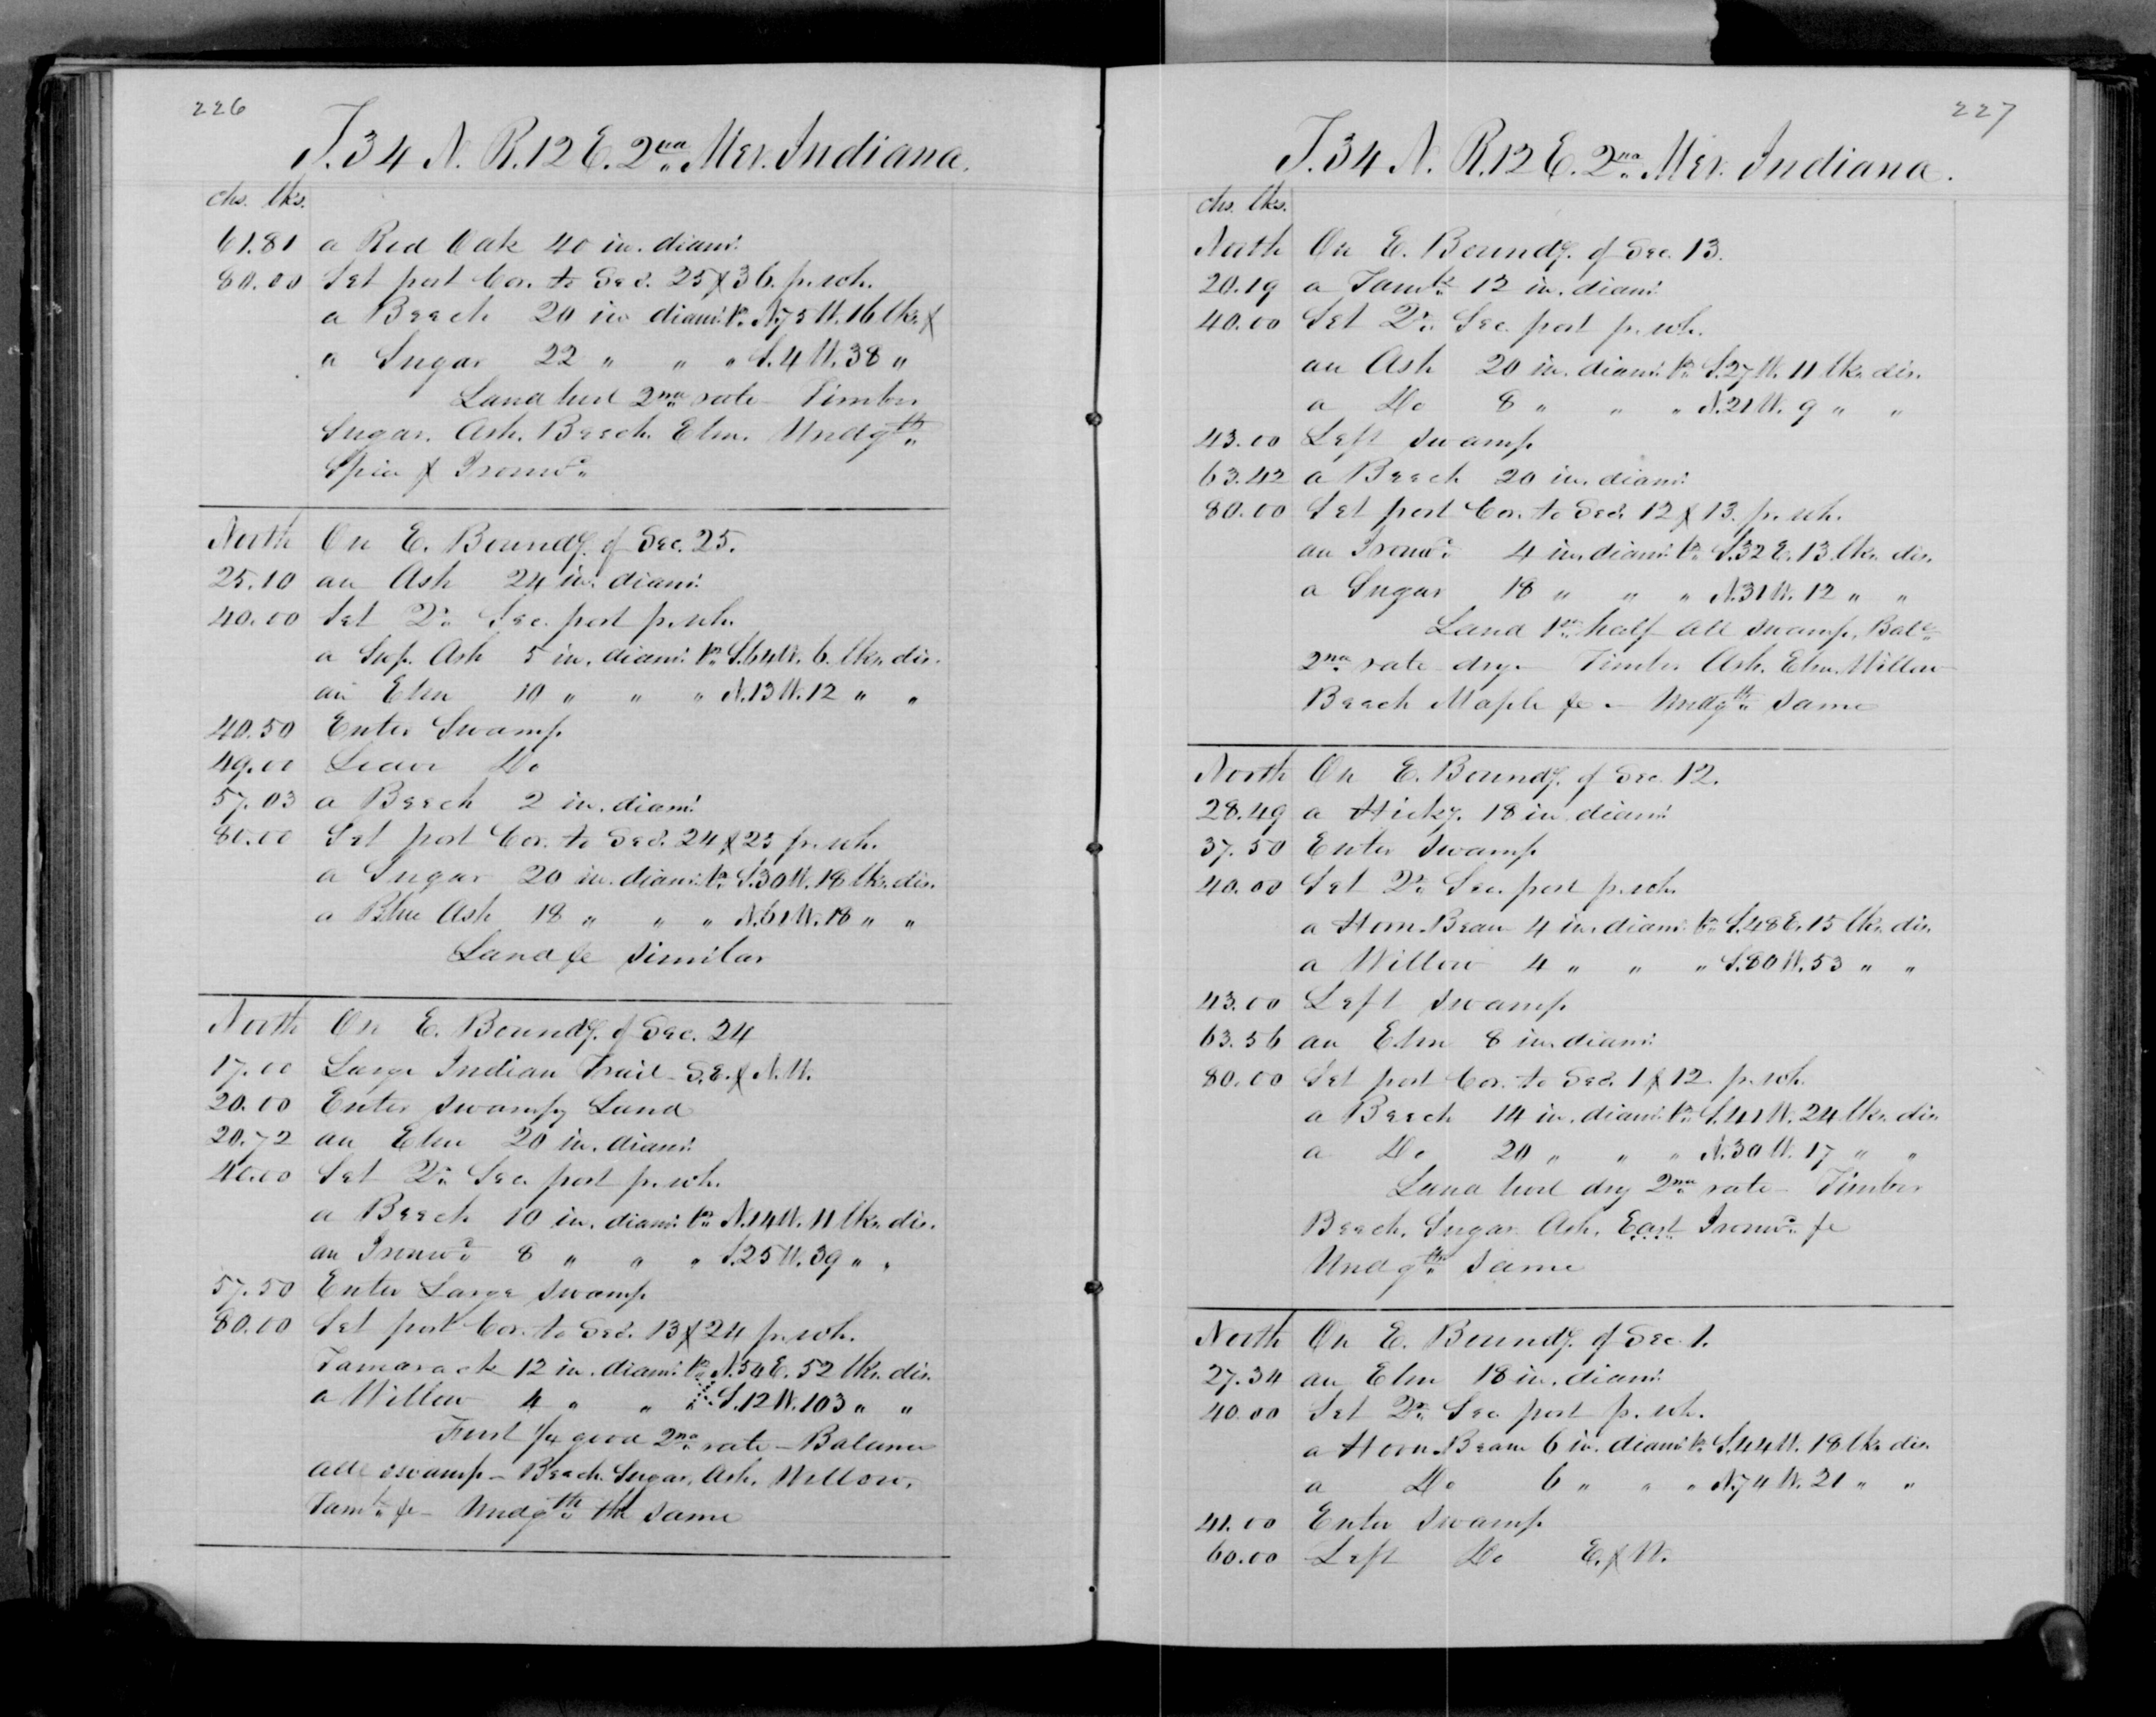 226
T. 34 N. R. 12 E. 2nd Mer. Indiana.
chs. lks.
61.81 a Red Oak 40 in. diam.
80.00 Set post Cor. to Secs. 25 & 36. p. wh.
a Beech 20 in diam. br. N. 75 W. 16 lks. &
a Sugar 22 " " " S. 4 W. 38 "
Land level 2nd rate - Timber
Sugar. Ash. Beech. Elm. Undgth
Spice & Ironwd.
North On E. Boundy. of Sec. 25.
25.10 an Ash 24 in. diam.
40.00 Set Qr. Sec. post p. wh.
a Swp. Ash 5 in. diam. br. S. 64 W. 6. lks. dis.
an Elm 10 " " " N. 13 W. 12 " "
40.50 Enter Swamp
49.00 Leave Do
57.03 a Beech 2 in. diam.
80.00 Set post Cor. to Secs. 24 & 25 p. wh.
a Sugar 20 in. diam. br. S. 30 W. 18 lks. dis.
a Blue Ash 18 " " " N. 61 W. 18 " "
Land &c similar
North On E. Boundy. of Sec. 24
17.00 Large Indian Trail - S.E. & N.W.
20.00 Enter swampy Land
20.72 an Elm 20 in. diam.
40.00 Set Qr. Sec. post p. wh.
a Beech 10 in. diam. br. N. 14 W. 11 lks. dis.
an Ironwd. 8 " " " S. 25 W. 39 " "
57.50 Enter Large swamp
80.00 Set post Cor. to Secs. 13 & 24 p. wh.
Tamarack 12 in. diam. br. N. 50 E. 52 lks. dis.
a Willow 4 " " " S. 12 W. 103 " "
First 1/4 good 2nd rate - Balance
all swamp - Beech. Sugar, Ash. Willow,
Tamk. &c - Undgth the same
227
T. 34 N. R. 12 E. 2nd Mer. Indiana.
chs. lks.
North On E. Boundy. of Sec. 13.
20.19 a Tamk. 12 in. diam.
40.00 Set Qr. Sec. post p. wh.
an Ash 20 in. diam. br. S. 27 W. 11 lks. dis.
a Do 8 " " " N. 21 W. 9 " "
43.00 Left swamp
63.42 a Beech 20 in. diam.
80.00 Set post Cor. to Secs. 12 & 13. p. wh.
an Ironwd. 4 in. diam. br. S. 32 E. 13 lks. dis.
a Sugar 18 " " " N. 31 W. 12 " "
Land 1st half all swamp, Balc.
2nd rate dry - Timber Ash. Elm. Willow
Beech Maple &c - Undgth same
North On E. Boundy. of Sec. 12.
28.49 a Hicky. 18 in diam.
37.50 Enter swamp
40.00 Set Qr. Sec. post p. wh.
a Horn Beam 4 in. diam. br. S. 48 E. 15 lks. dis.
a Willow 4 " " " S. 80 W. 53 " "
43.00 Left swamp
63.56 an Elm 8 in. diam.
80.00 Set post Cor. to Secs. 1 & 12 p. wh.
a Beech 14 in. diam. br. S. 41 W. 24 lks. dis
a Do 20 " " " N. 30 W. 17 " "
Land level dry 2nd rate - Timber
Beech. Sugar. Ash. East Ironwd. &c
Undgth same
North On E. Boundy. of Sec. 1.
27.34 an Elm 18 in. diam.
40.00 Set Qr. Sec. post p. wh.
a Horn Beam 6 in. diam. br. S. 44 W. 18 lks dis.
a Do 6 " " " N. 74 W. 21 " "
41.00 Enter swamp
60.00 Left Do E. & W.